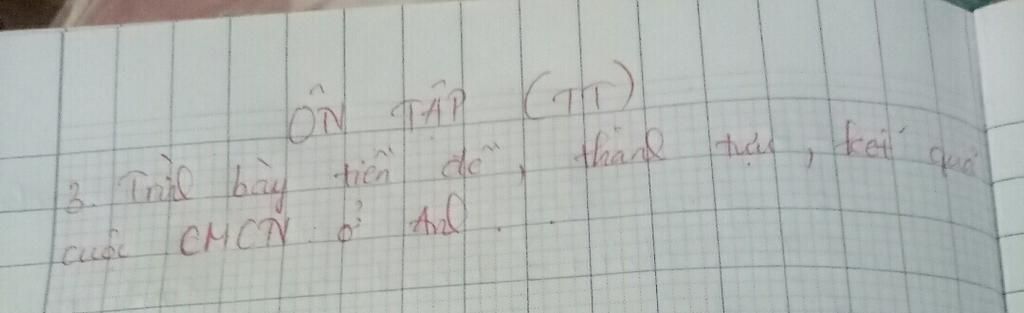 ÔN TẬP (TT)
3. Trình bày tiền đề, thành tựu, kết quả
cuộc CMCN ở Anh.